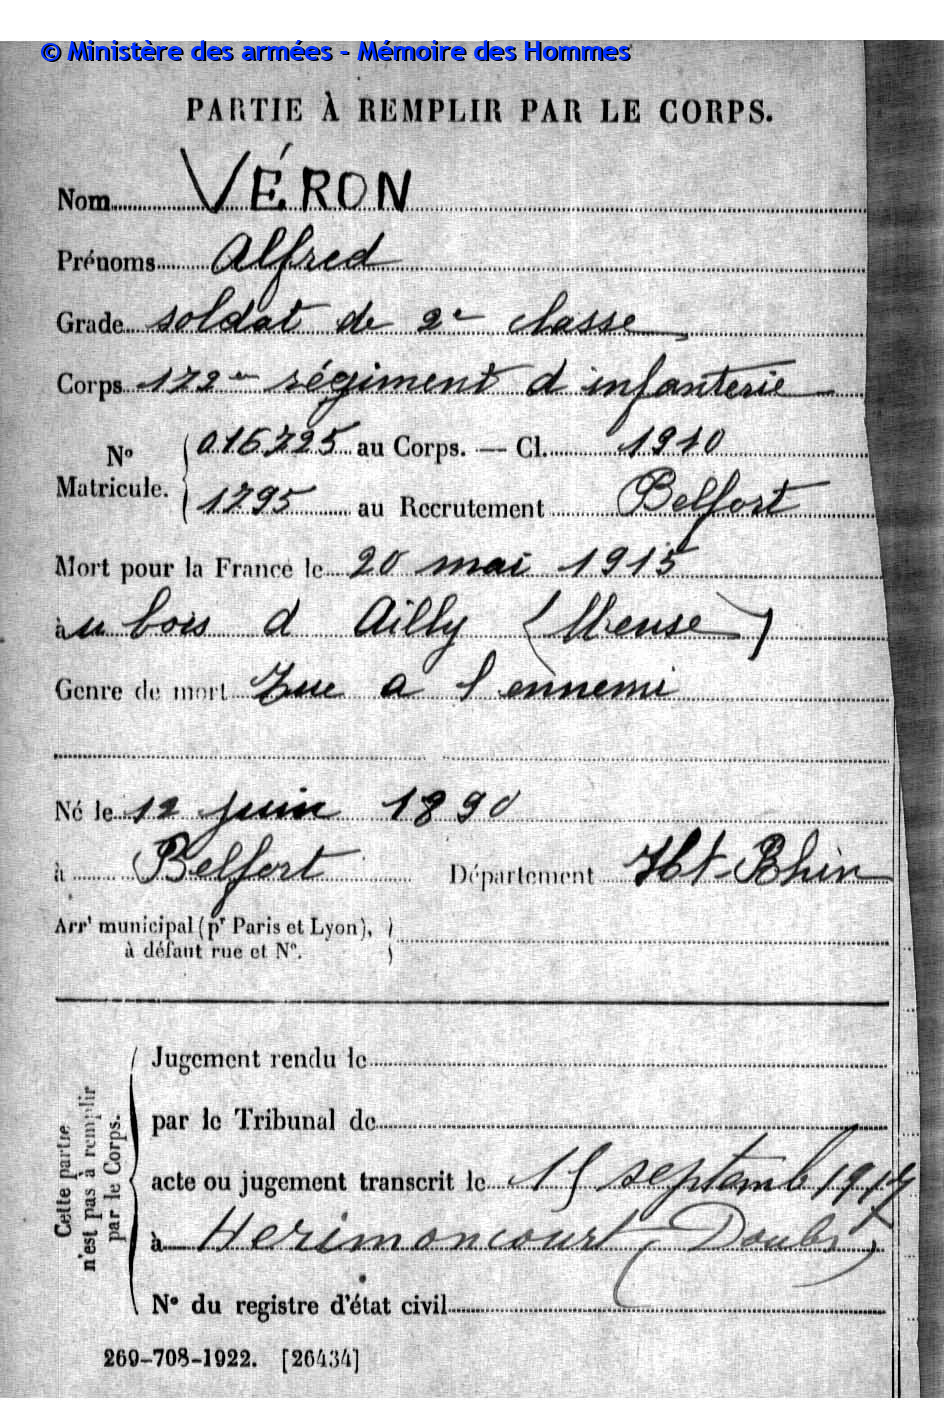 © Ministère des armées - Mémoire des Hommes
PARTIE À REMPLIR PAR LE CORPS.
Nom VÉRON
Prénoms Alfred
Grade soldat de 2e classe
Corps 172e régiment d infanterie
No Matricule. { 016725 au Corps. — Cl. 1910
1795 au Recrutement Belfort
Mort pour la France le 20 mai 1915
àu bois d Ailly (Meuse)
Genre de mort Tué a l ennemi
Né le 12 juin 1890
à Belfort Département Ht-Rhin
Arrt municipal (pr Paris et Lyon),
à défaut rue et No.
Cette partie n'est pas à remplir par le Corps.
Jugement rendu le
par le Tribunal de
acte ou jugement transcrit le 15 septemb 1917
à Herimoncourt (Doubs)
No du registre d'état civil
269-708-1922. [26434]